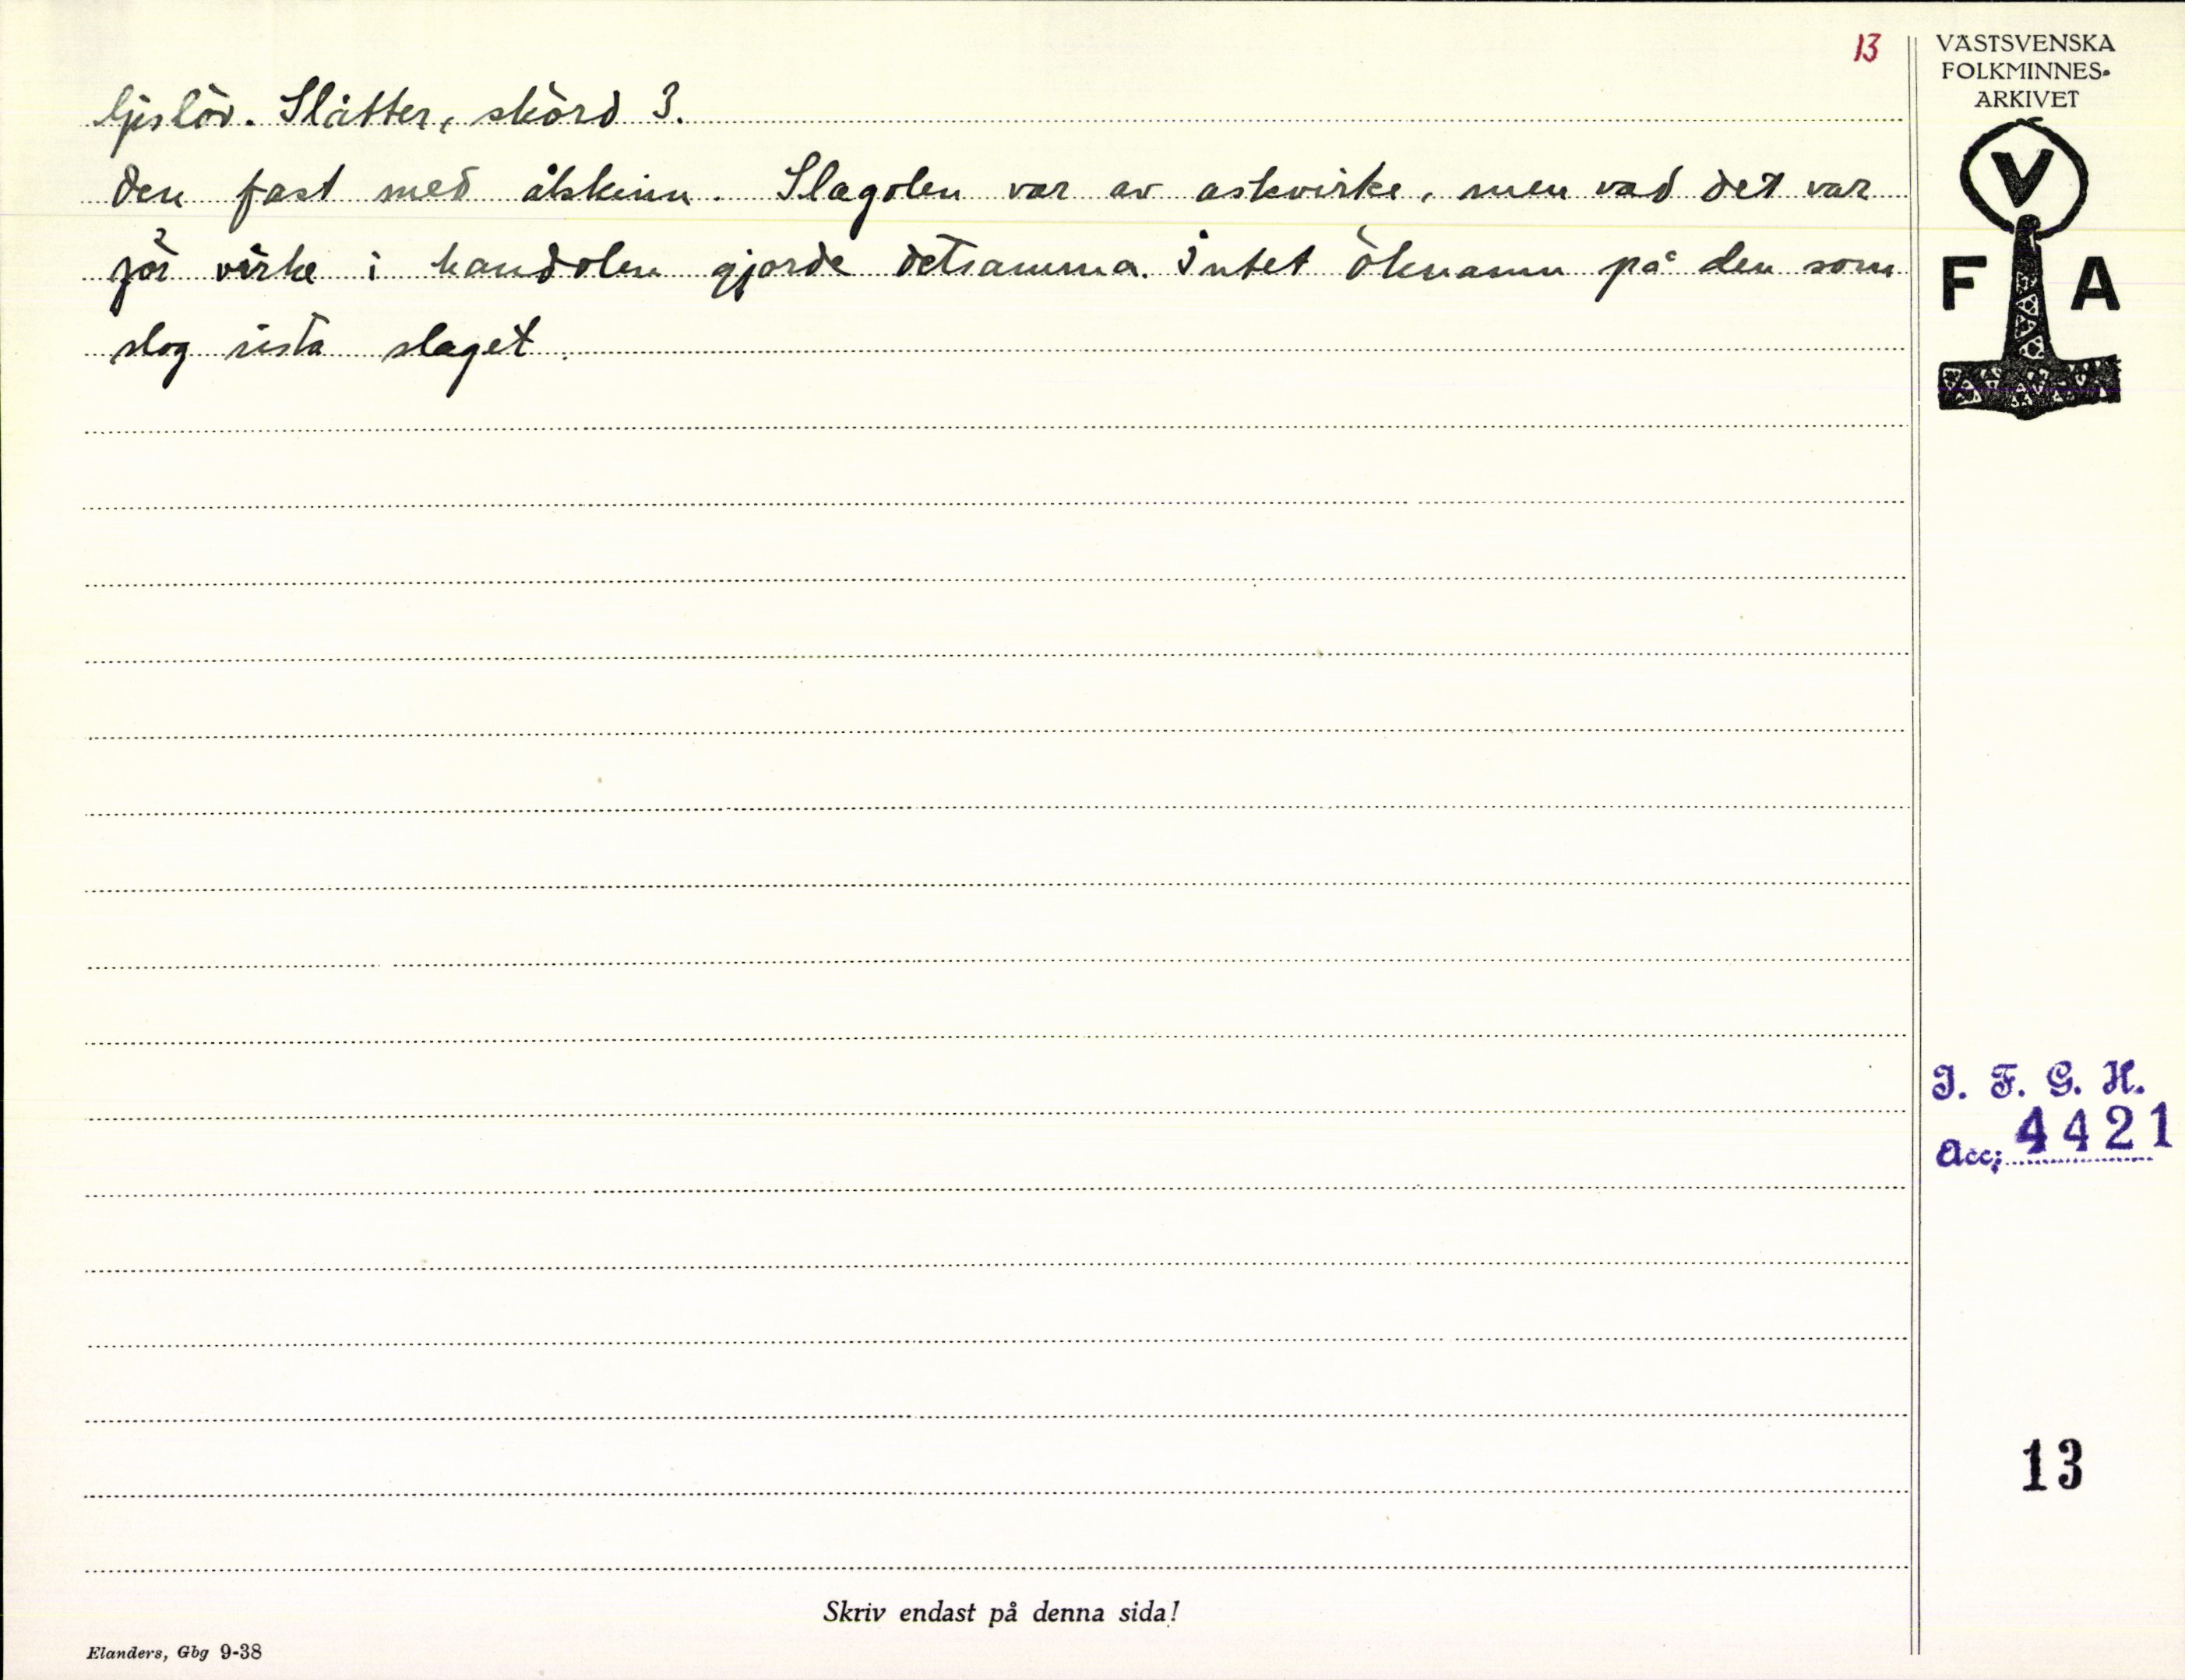 13
VÄSTSVENSKA
FOLKMINNES-
ARKIVET
V
F A
Gislöv. Slåtter, skörd 3.
den fast med ålskinn. Slagolen var av askvirke, men vad det var
för virke i handolen gjorde detsamma. Intet öknamn på den som
slog sista slaget.
I. F. G. H.
Acc; 4421
13
Skriv endast på denna sida!
Elanders, Gbg 9-38